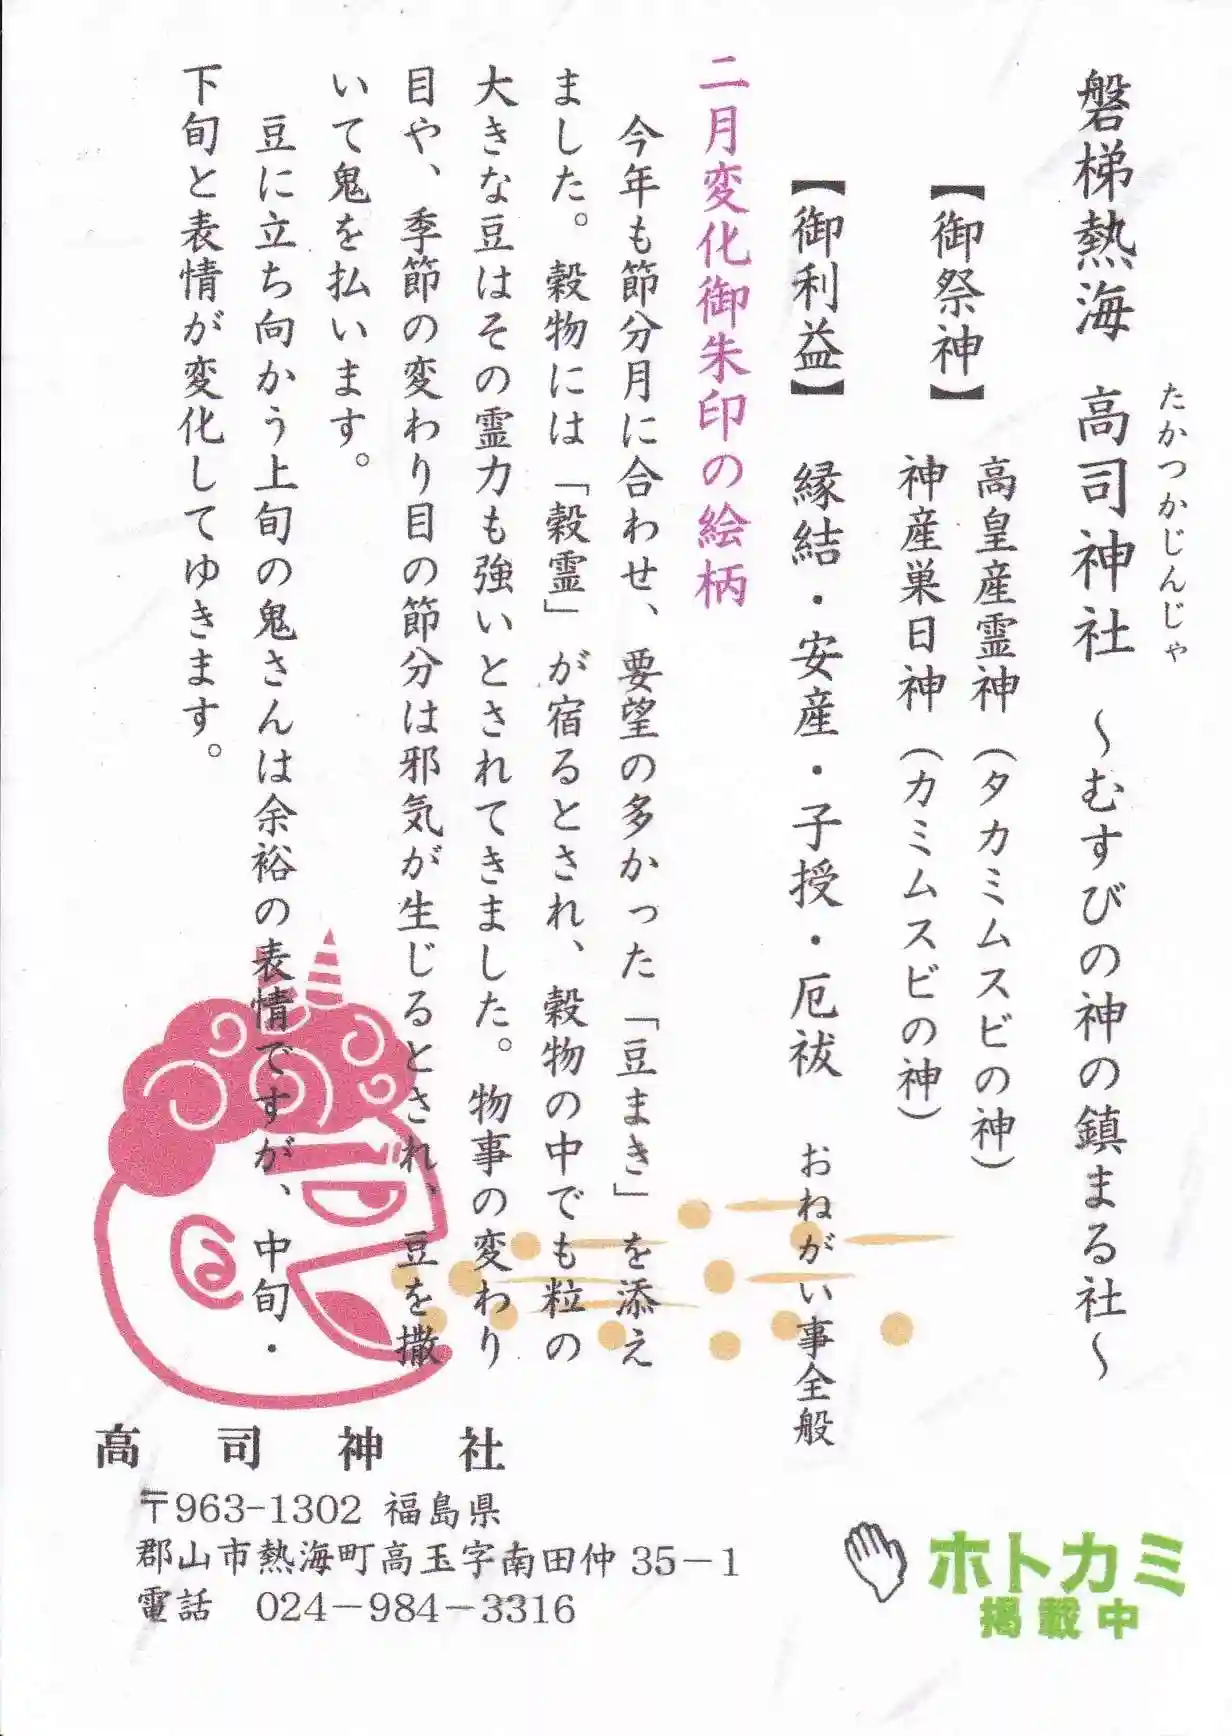 磐梯熱海 高司神社 ～むすびの神の鎮まる社～
たかつかじんじゃ
【御祭神】 高皇産霊神（タカミムスビの神）
神産巣日神（カミムスビの神）
【御利益】 縁結・安産・子授・厄祓 おねがい事全般
二月変化御朱印の絵柄
今年も節分月に合わせ、要望の多かった「豆まき」を添え
ました。穀物には「穀霊」が宿るとされ、穀物の中でも粒の
大きな豆はその霊力も強いとされてきました。物事の変わり
目や、季節の変わり目の節分は邪気が生じるとされ、豆を撒
いて鬼を払います。
豆に立ち向かう上旬の鬼さんは余裕の表情ですが、中旬・
下旬と表情が変化してゆきます。
高司神社
〒963-1302 福島県
郡山市熱海町高玉字南田仲35－1
電話 024－984－3316
ホトカミ
掲載中